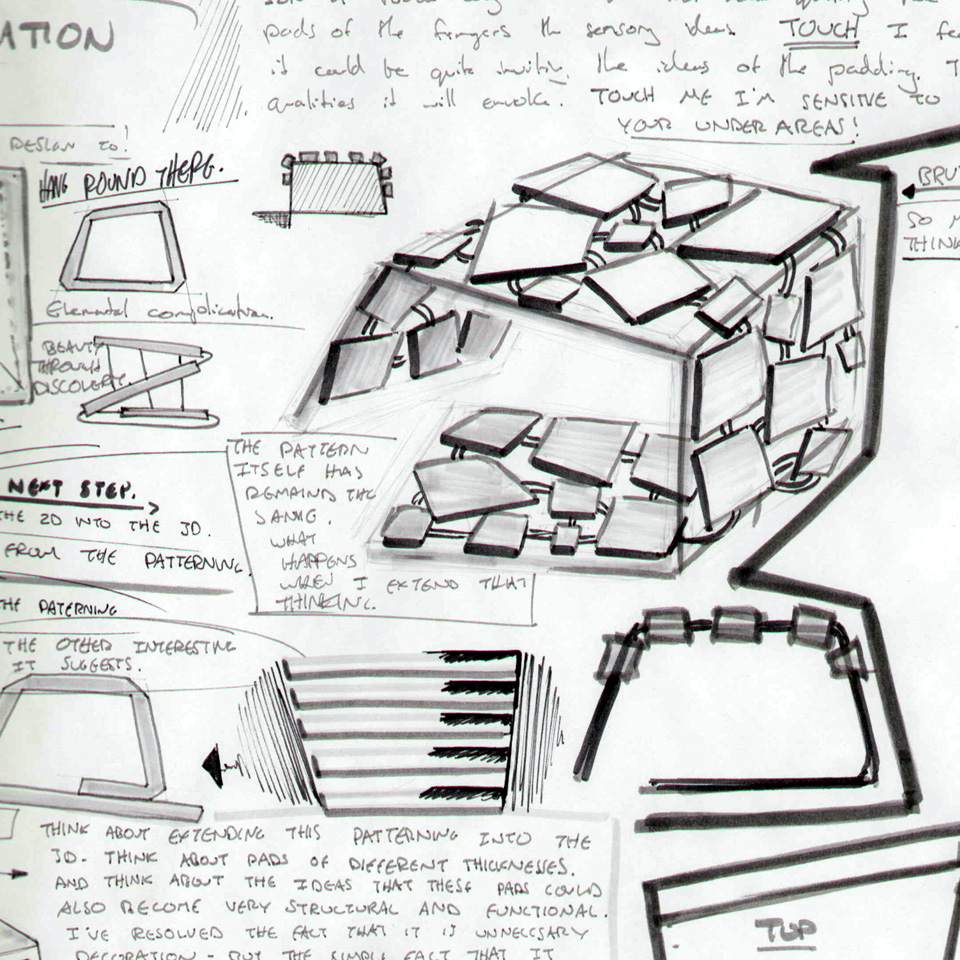 ATION
pads of the fingers the sensory ideas. TOUCH I
it could be quite inviting. the ideas of the padding.
qualities it will envoke. TOUCH ME I'M SENSITIVE TO
YOUR UNDER AREAS!
DESIGN TO!
HANG ROUND THERE.
Elemental complication.
BEAUTY
THROUGH
DISCOVERY.
BRU
SO M
THINK
THE PATTERN
ITSELF HAS
REMAIND THE
SAME.
WHAT
HAPPENS
WHEN I EXTEND THAT
THINKING.
NEXT STEP.
THE 2D INTO THE 3D.
FROM THE PATTERNING.
THE PATERNING
THE OTHER INTERESTING
IT SUGGESTS.
THINK ABOUT EXTENDING THIS PATTERNING INTO THE
3D. THINK ABOUT PADS OF DIFFERENT THICKNESSES.
AND THINK ABOUT THE IDEAS THAT THESE PADS COULD
ALSO BECOME VERY STRUCTURAL AND FUNCTIONAL.
I'VE RESOLVED THE FACT THAT IT IS UNNECESSARY
DECORATION - BUT THE SIMPLE FACT THAT IT
TOP